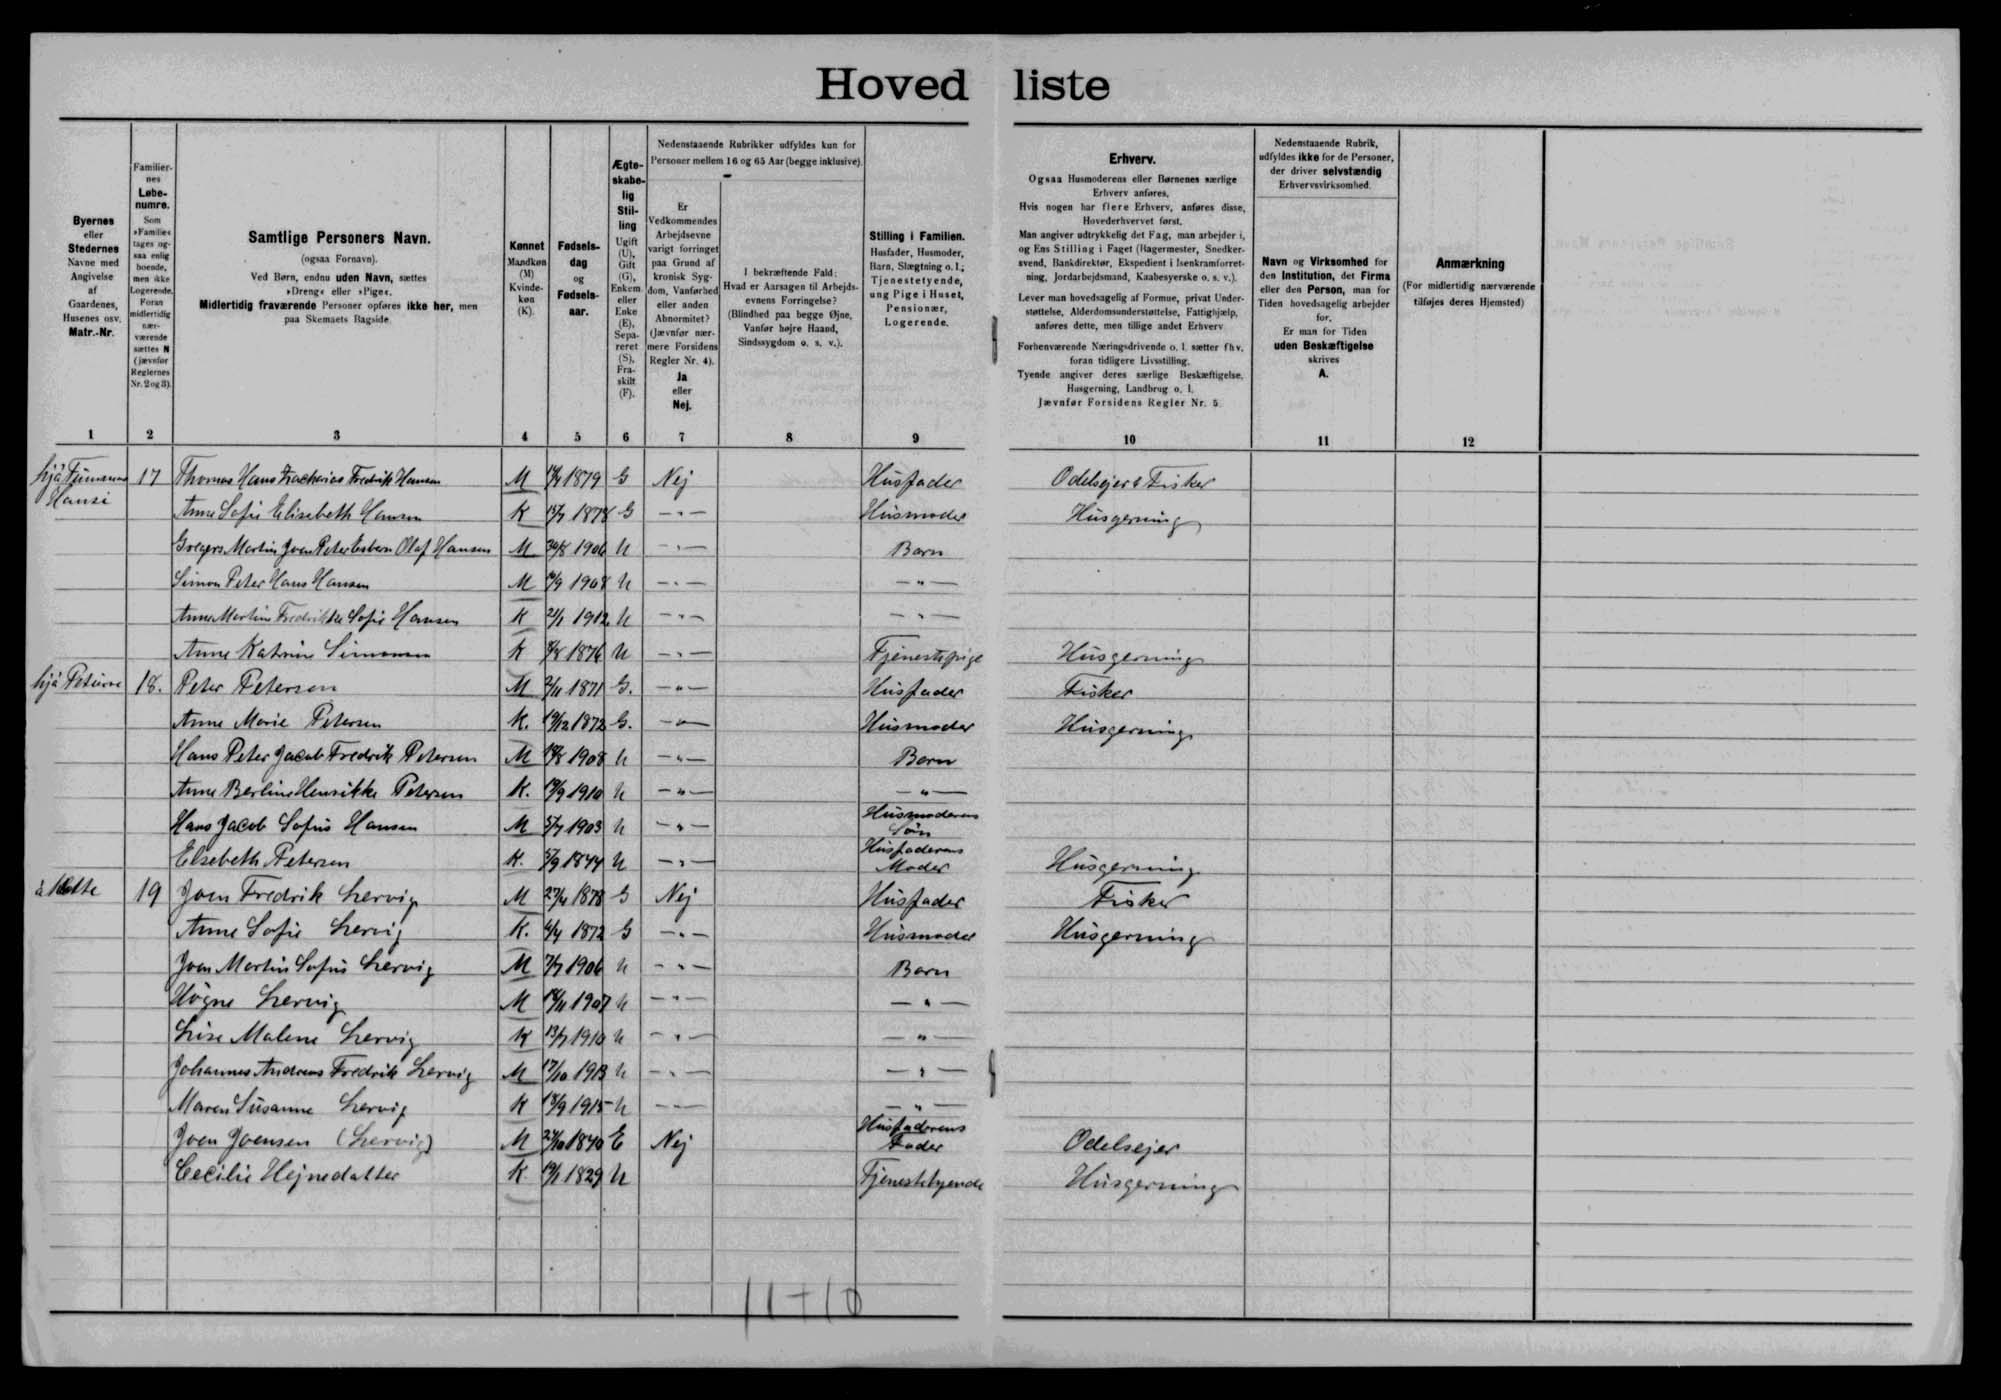 Hovedliste
Byernes eller Stedernes Navne med Angivelse af Gaardenes, Husenes osv. Matr.-Nr.
Familiernes Løbenumre. Som »Familie« tages ogsaa enlig boende, men ikke Logerende. Foran midlertidig nærværende sættes N (jævnfør Reglernes Nr. 2 og 3).
Samtlige Personers Navn.
(ogsaa Fornavn).
Ved Børn, endnu uden Navn, sættes »Dreng« eller »Pige«.
Midlertidig fraværende Personer opføres ikke her, men paa Skemaets Bagside.
Kønnet Mandkøn (M) Kvindekøn (K).
Fødselsdag og Fødselsaar.
Ægteskabelig Stilling Ugift (U), Gift (G), Enkemand eller Enke (E), Separeret (S), Fraskilt (F).
Nedenstaaende Rubrikker udfyldes kun for Personer mellem 16 og 65 Aar (begge inklusive).
Er Vedkommendes Arbejdsevne varigt forringet paa Grund af kronisk Sygdom, Vanførhed eller anden Abnormitet? (Jævnfør nærmere Forsidens Regler Nr. 4). Ja eller Nej.
I bekræftende Fald: Hvad er Aarsagen til Arbejdsevnens Forringelse? (Blindhed paa begge Øjne, Vanfør højre Haand, Sindssygdom o. s. v.).
Stilling i Familien. Husfader, Husmoder, Barn, Slægtning o. l.; Tjenestetyende, ung Pige i Huset, Pensionær, Logerende.
Erhverv.
Ogsaa Husmoderens eller Børnenes særlige Erhverv anføres.
Hvis nogen har flere Erhverv, anføres disse, Hovederhvervet først.
Man angiver udtrykkelig det Fag, man arbejder i, og Ens Stilling i Faget (Bagermester, Snedkersvend, Bankdirektør, Ekspedient i Isenkramforretning, Jordarbejdsmand, Kaabesyerske o. s. v.).
Lever man hovedsagelig af Formue, privat Understøttelse, Alderdomsunderstøttelse, Fattighjælp, anføres dette, men tillige andet Erhverv.
Forhenværende Næringsdrivende o. l. sætter fhv. foran tidligere Livsstilling.
Tyende angiver deres særlige Beskæftigelse, Husgerning, Landbrug o. l.
Jævnfør Forsidens Regler Nr. 5.
Nedenstaaende Rubrik, udfyldes ikke for de Personer, der driver selvstændig Erhvervsvirksomhed.
Navn og Virksomhed for den Institution, det Firma eller den Person, man for Tiden hovedsagelig arbejder for.
Er man for Tiden uden Beskæftigelse skrives A.
Anmærkning
(For midlertidig nærværende tilføjes deres Hjemsted)
1 2 3 4 5 6 7 8 9 10 11 12
hjá 17 Thomas Hans Zacharias Fredrik Hansen M 1879 G Nej Husfader Odelsejer & Fisker
Hansi Anne Sofie Elisabeth Hansen K 15/7 1878 G -"- Husmoder Husgerning
Martin Joen Peter Esbern Olaf Hansen M 30/8 1906 U -"- Barn
Simon Peter Hans Hansen M 1908 U -"- -"-
Anne Martine Fredrikke Sofie Hansen K 21/1 1912 U -"- -"-
Anne Katrine Simonsen K 1876 U -"- Tjenestepige Husgerning
hjá 18. Peter Petersen M 2/11 1871 G. -"- Husfader Fisker
Anne Marie Petersen K. 19/12 1872 G. -"- Husmoder Husgerning
Hans Peter Jacob Fredrik Petersen M 1908 U -"- Barn
Anne Berline Henrikke Petersen K. 19/9 1910 U -"- -"-
Hans Jacob Sofus Hansen M 5/7 1903 U -"- Husmoderens Søn
Elsebeth Petersen K. 5/9 1844 U -"- Husfaderens Moder Husgerning
á 19 Joen Fredrik Lervig M 27/4 1878 G Nej Husfader Fisker
Anne Sofie Lervig K. 1872 G -"- Husmoder Husgerning
Joen Martin Sofus Lervig M 7/7 1906 U -"- Barn
Høgne Lervig M 18/11 1907 U -"- -"-
Lise Malene Lervig K 13/7 1910 U -"- -"-
Johannes Andreas Fredrik Lervig M 17/10 1913 U -"- -"-
Maren Susanne Lervig K 18/9 1915 U -"- -"-
Joen Joensen (Lervig) M 24/10 1840 E Nej Husfaderens Fader Odelsejer
Cecilie Hejnedatter K 19/1 1829 U Tjenestetyende Husgerning
11+10